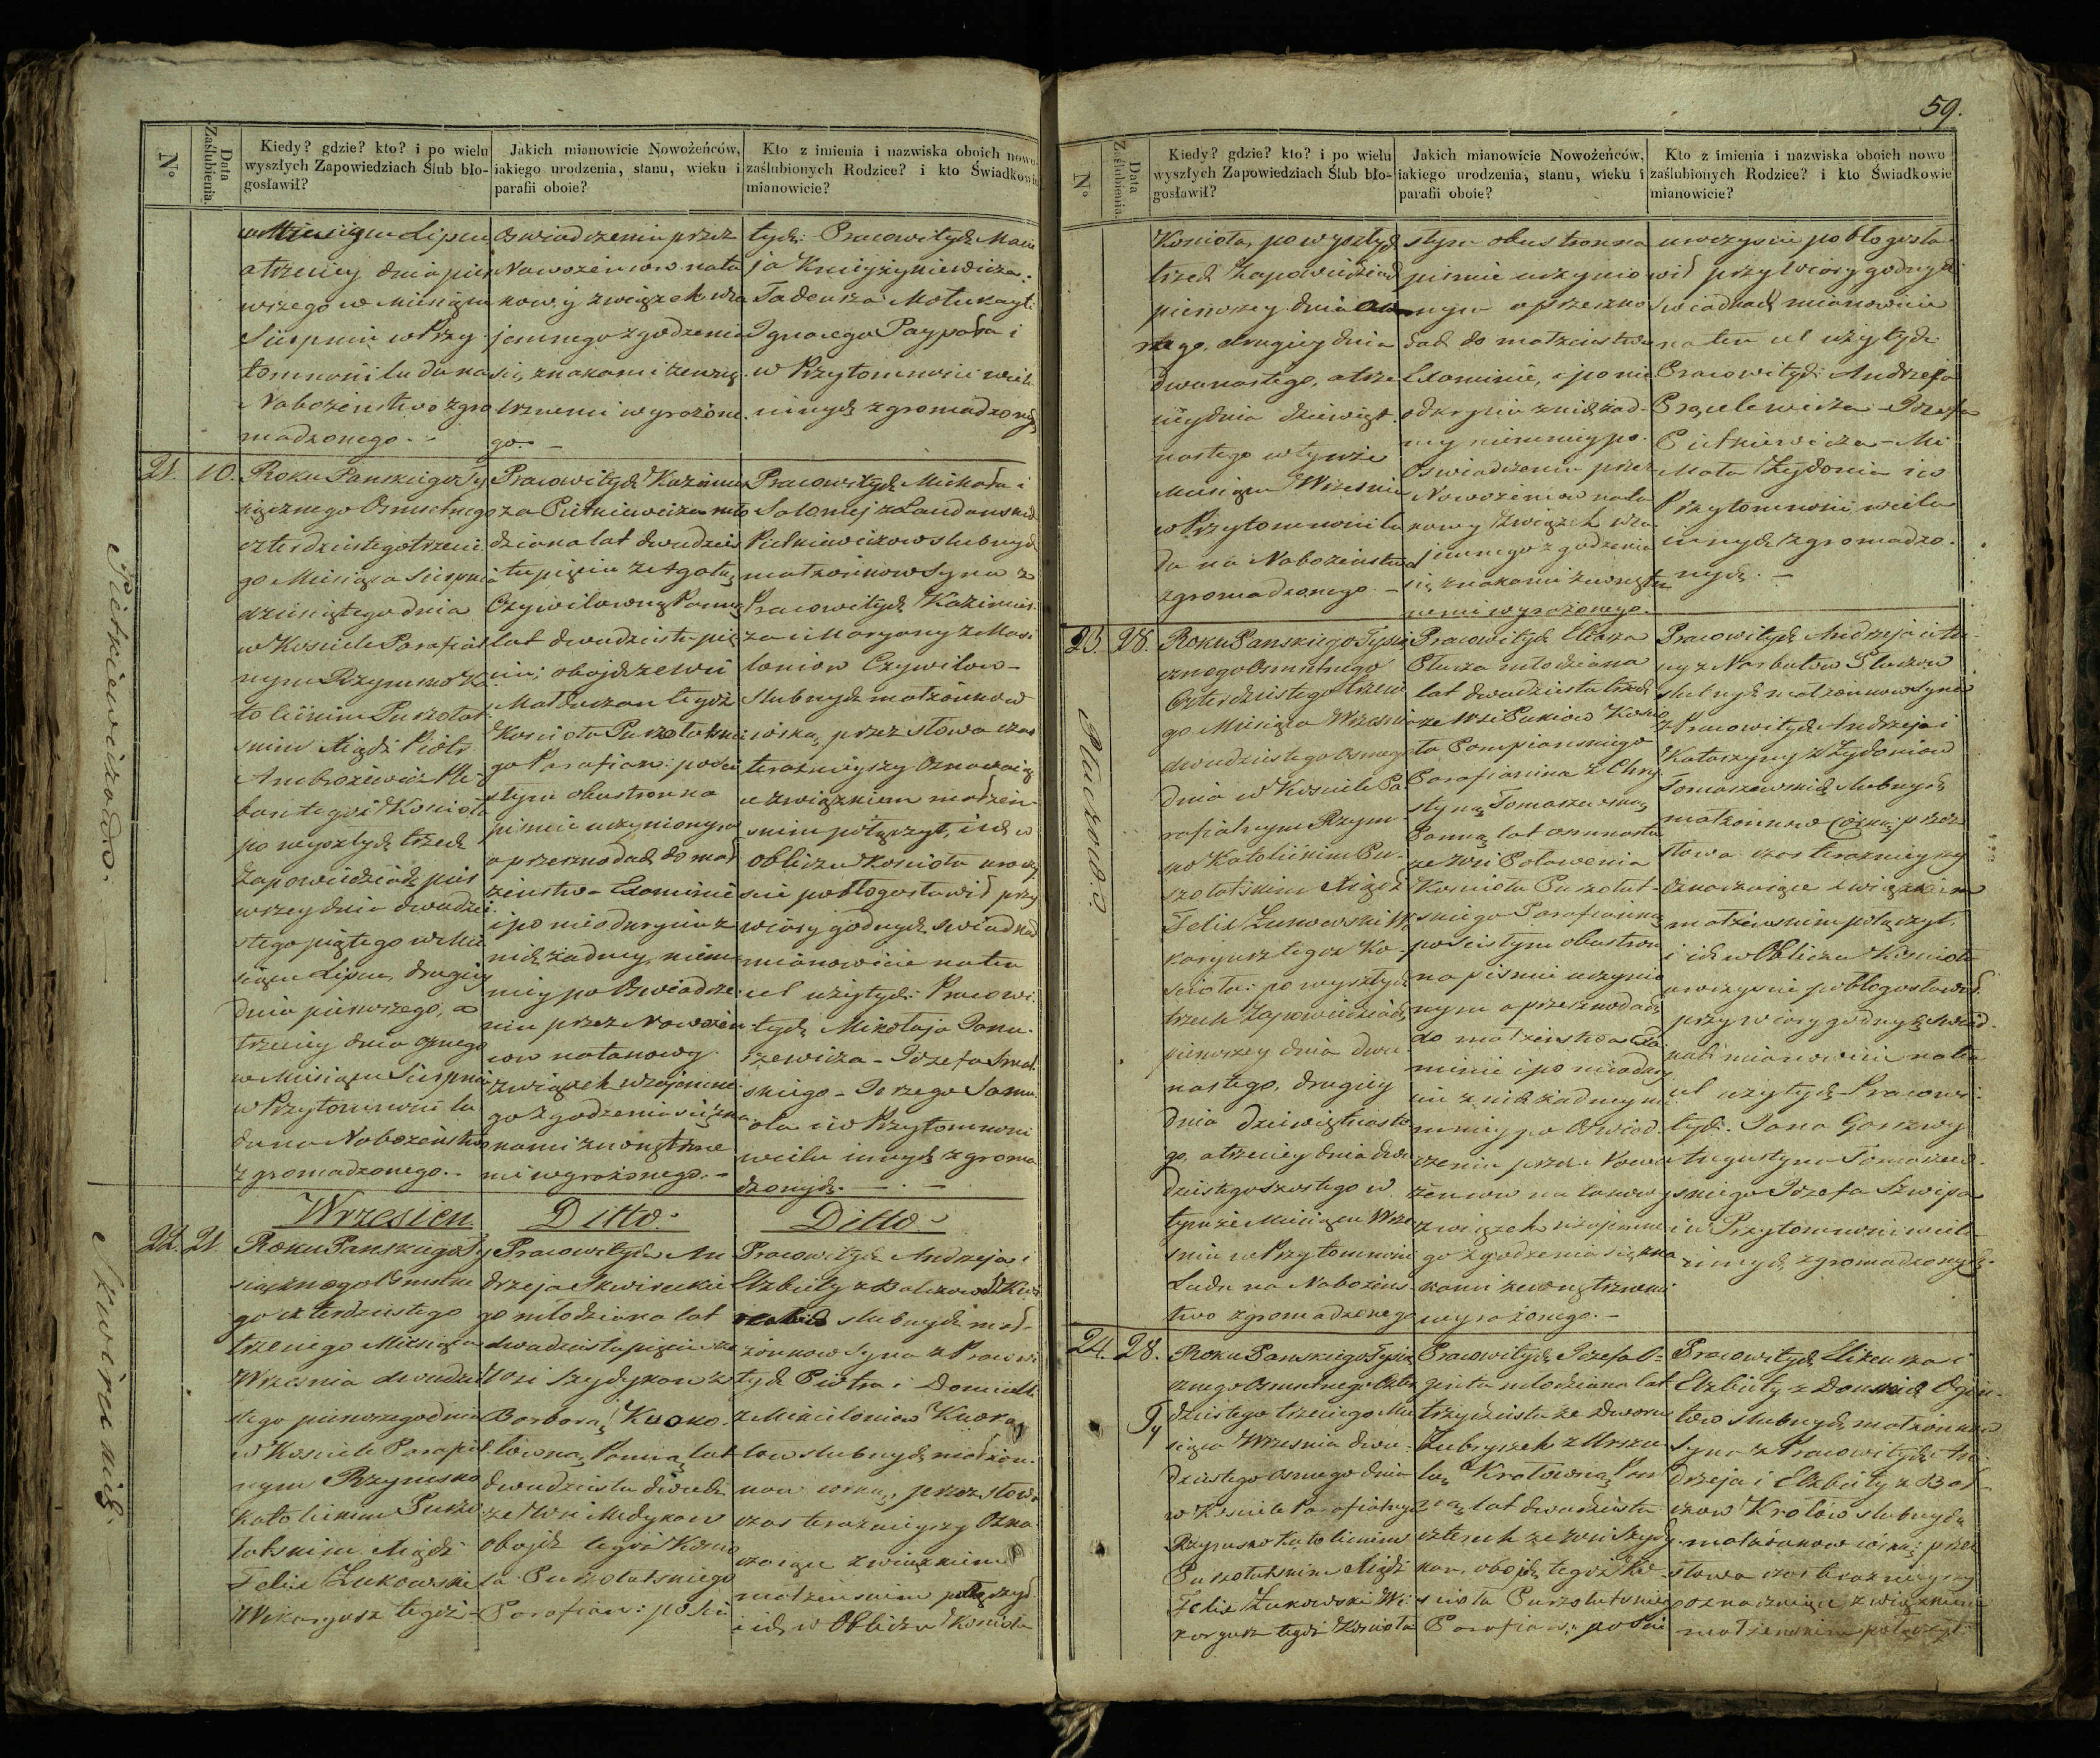 59.
N°
Data Zaślubienia.
Kiedy? gdzie? kto? i po wielu
wyszłych Zapowiedziach Ślub bło-
gosławił?
Jakich mianowicie Nowożeńców,
jakiego urodzenia, stanu, wieku i
parafii oboie?
Kto z imienia i nazwiska oboich nowo
zaślubionych Rodzice? i kto Świadkowie
mianowicie?
w Miesiącu Lipcu
a trzeciey dnia pier
wszego w Miesiącu
Sierpniu w Przy
tomności ludu na
Nabożeństwo zgro
madzonego.
Oswiadczeniu przez
Nowożeńcow nata
kowy związek wza
jemnego zgodzenia
się, znakami zewnę
trznemi wyrażone
go.
tych: Pracowitych Macie
ja
Tadeusza
Ignacego Paypała i
w Przytomności wielu
innych zgromadzonych
Pietkiewiczow.
21. 10.
Roku Panskiego Ty
siącznego Osmsetnego
czterdziestego trzecie
go Miesiąca Sierpnia
dziesiątego dnia
w Kosciele Parafial
nym Rzymsko Ka
tolickim Puszołat
skim Xiądz Piotr
Ambrożewicz Ple
ban tegoż Kościoła
po wyszłych trzech
Zapowiedziach pier
wszey dnia dwudzie
stego piątego w Mie
siącu Lipcu, drugiey
dnia pierwszego, a
trzeciey dnia osmego
w Miesiącu Sierpniu
w Przytomności lu
du na Nabożeństwo
zgromadzonego.
Pracowitych Kazimie
rza Pietkiewicza mło
dziana lat dwadzieś
cia pięciu z Agatą
Czywilowną Panną
lat dwadziestu pię
ciu; obojch ze wsi
tegoż
Kościoła Puszołatskie
go Parafian: po ści
słym obustronna
pismie uczynionym
o przeszkodach do mał
żeństwa Examinie
i po nieodkryciu z
nich żadney, niem
niey po Oswiadcze
niu przez Nowożeń
cow natakowy
związek wzajemne
go zgodzenia się zna
kami zewnętrzne
mi wyrażonego.
Pracowitych Michała i
Salomei z Laudanskich
Pietkiewiczow slubnych
małżonkow Syna z
Pracowitych Kazimie
rza i Maryany z Masi
Czywilow
slubnych małżonkow
corką, przez słowa czas
teraznieyszy Oznaczają
ce związkiem małżeń
skim połączył, i ich w
obliczu Kościoła uroczy
scie pobłogosławił przy
wiary godnych Swiadkach
mianowicie na ten
cel użytych: Pracowi
tych Mikołaja Janu
szewicza Józefa
skiego Jerzego Samu
oła i w Przytomności
wielu innych zgroma
dzonych.
Wrzesień. Ditto. Ditto.
Skwireckich.
22. 21.
Roku Panskiego Ty
siącznego Osmsetne
go czterdziestego
trzeciego Miesiąca
Września dwudzie
stego pierwszego dnia
w Kosciele Parafial
nym Rzymsko
Katolickim Puszo
łatskim Xiądz
Felix Żukowski
Wikaryusz tegoż
Pracowitych An
drzeja Skwireckie
go młodziana lat
dwadziestu pięciu ze
Wsi Szydykan z
Barbarą Kuoko
lowną, Panną lat
dwadziestu dwuch
ze Wsi Medykan
obojch tegoż Koscio
ła Puszołatskiego
Parafian: po ści
Pracowitych Andrzeja i
Elżbiety z Balczow Skwi
reckich slubnych mał
żonkow Syna z Pracowi
tych Piotra i Domicelli
Kuoko
low slubnych małżon
kow corką, przez słowa
czas teraznieyszy Ozna
czające związkiem
małżenskim połączył
i ich w Obliczu Kosciola
Kościoła, po wyszłych
trzech Zapowiedziach
pierwszey dnia
drugiey dnia
dwunastego, a trze
ciey dnia dziewięt
nastego w tymże
Miesiącu Wrzesniu
w Przytomności lu
du na Nabożeństwo
zgromadzonego.
słym obustronna
pismie uczynio
nym o przeszko
dach do małżeństwa
Examinie, i po nie
odkryciu z nich żad
ney niemniey po
Oswiadczeniu przez
Nowożeńcow nata
kowy związek wza
jemnego zgodzenia
się znakami zewnętrz
nemi wyrażonego.
uroczyscie pobłogosła
wił przy Wiary godnych
Swiadkach mianowicie
na ten cel użytych:
Pracowitych Andrzeja
Józefa
Pietkiewicza Mi
Żydonia i w
Przytomności wielu
innych zgromadzo
nych.
23. 28.
Roku Panskiego Tysią
cznego Osmsetnego
Czterdziestego trzecie
go Miesiąca Września
dwudziestego Osmego
dnia w Kosciele Pa
rafialnym Rzym
sko Katolickim Pu
szołatskim Xiądz
Felix Żukowski Wi
karyusz tegoż Ko
ścioła: po wyszłych
trzech Zapowiedziach
pierwszey dnia dwu
nastego, drugiey
dnia dziewiętnaste
go, a trzeciey dnia dwu
dziestego szostego w
tymże Miesiącu Wrze
sniu w Przytomności
Ludu na Nabożeńs
two zgromadzonego
Pracowitych Eliasza
młodziana
lat dwadziestu trzech
ze Wsi Koscio
ła Pompianskiego
Parafianina z Chry
styną Tomaszewską
Panną lat osmnastu
ze Wsi
Kościoła Puszołat
skiego Parafianką
po ścisłym obustron
na pismie uczynio
nym o przeszkodach
do małżeństwa Exa
minie i po nieodkry
ciu z nich żadney nie
mniey po Oswiad
czeniu przez Nowo
żeńcow natakowy
związek wzajemne
go zgodzenia się zna
kami zewnętrznemi
wyrażonego.
Pracowitych Andrzeja i An
ny z Narbutow
slubnych małżonkow Syna
z Pracowitych Andrzeja i
Katarzyny z Żydoniow
Tomaszewskich slubnych
małżonkow Corką, przez
słowa czas teraznieyszy
oznaczające związkiem
małżenskim połączył,
i ich w Obliczu Kościoła
uroczyscie pobłogosławił
przy wiary godnych Swiad
kach mianowicie na ten
cel użytych Pracowi
tych: Jana
Augustyna Tomaszew
skiego Józefa Szwipa
i w Przytomności wielu
innych zgromadzonych.
24. 28.
Roku Panskiego Tysią
cznego Osmsetnego Czter
dziestego trzeciego Mie
siąca Września dwu
dziestego osmego dnia
w Kosciele Parafialnym
Rzymsko Katolickim
Puszołatskim Xiądz
Felix Żukowski Wi
karyusz tegoż Kościoła
Pracowitych Józefa O
ginta młodziana lat
trzydziestu ze Dworu
z Urszu
lą Krolowną Pan
ną lat dwadziestu
czterech ze wsi Szydy
kan, obojch tegoż Ko
ścioła Puszołatskiego
Parafian: po ści
Pracowitych Elizeusza i
Elżbiety z Ogin
tow slubnych małżonkow
Syna z Pracowitych An
drzeja i Elżbiety z Bal
czow Krolow slubnych
małżonkow corką przez
słowa czas teraznieyszy
oznaczające związkiem
małżenskim połączył